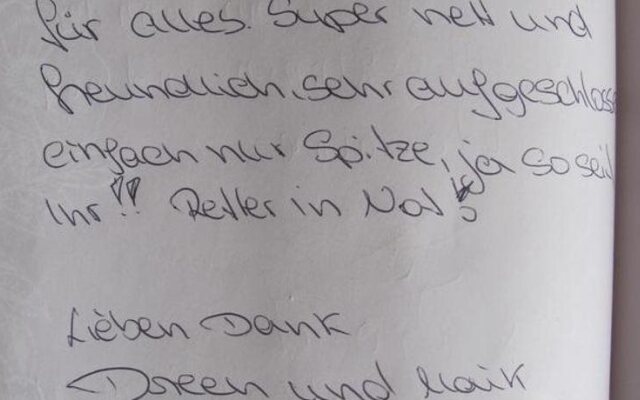 für alles. Super nett und
freundlich, sehr aufgeschlosse
einfach nur Spitze, ja so seid
Ihr!! Retter in Not!
Lieben Dank
Doreen und Maik